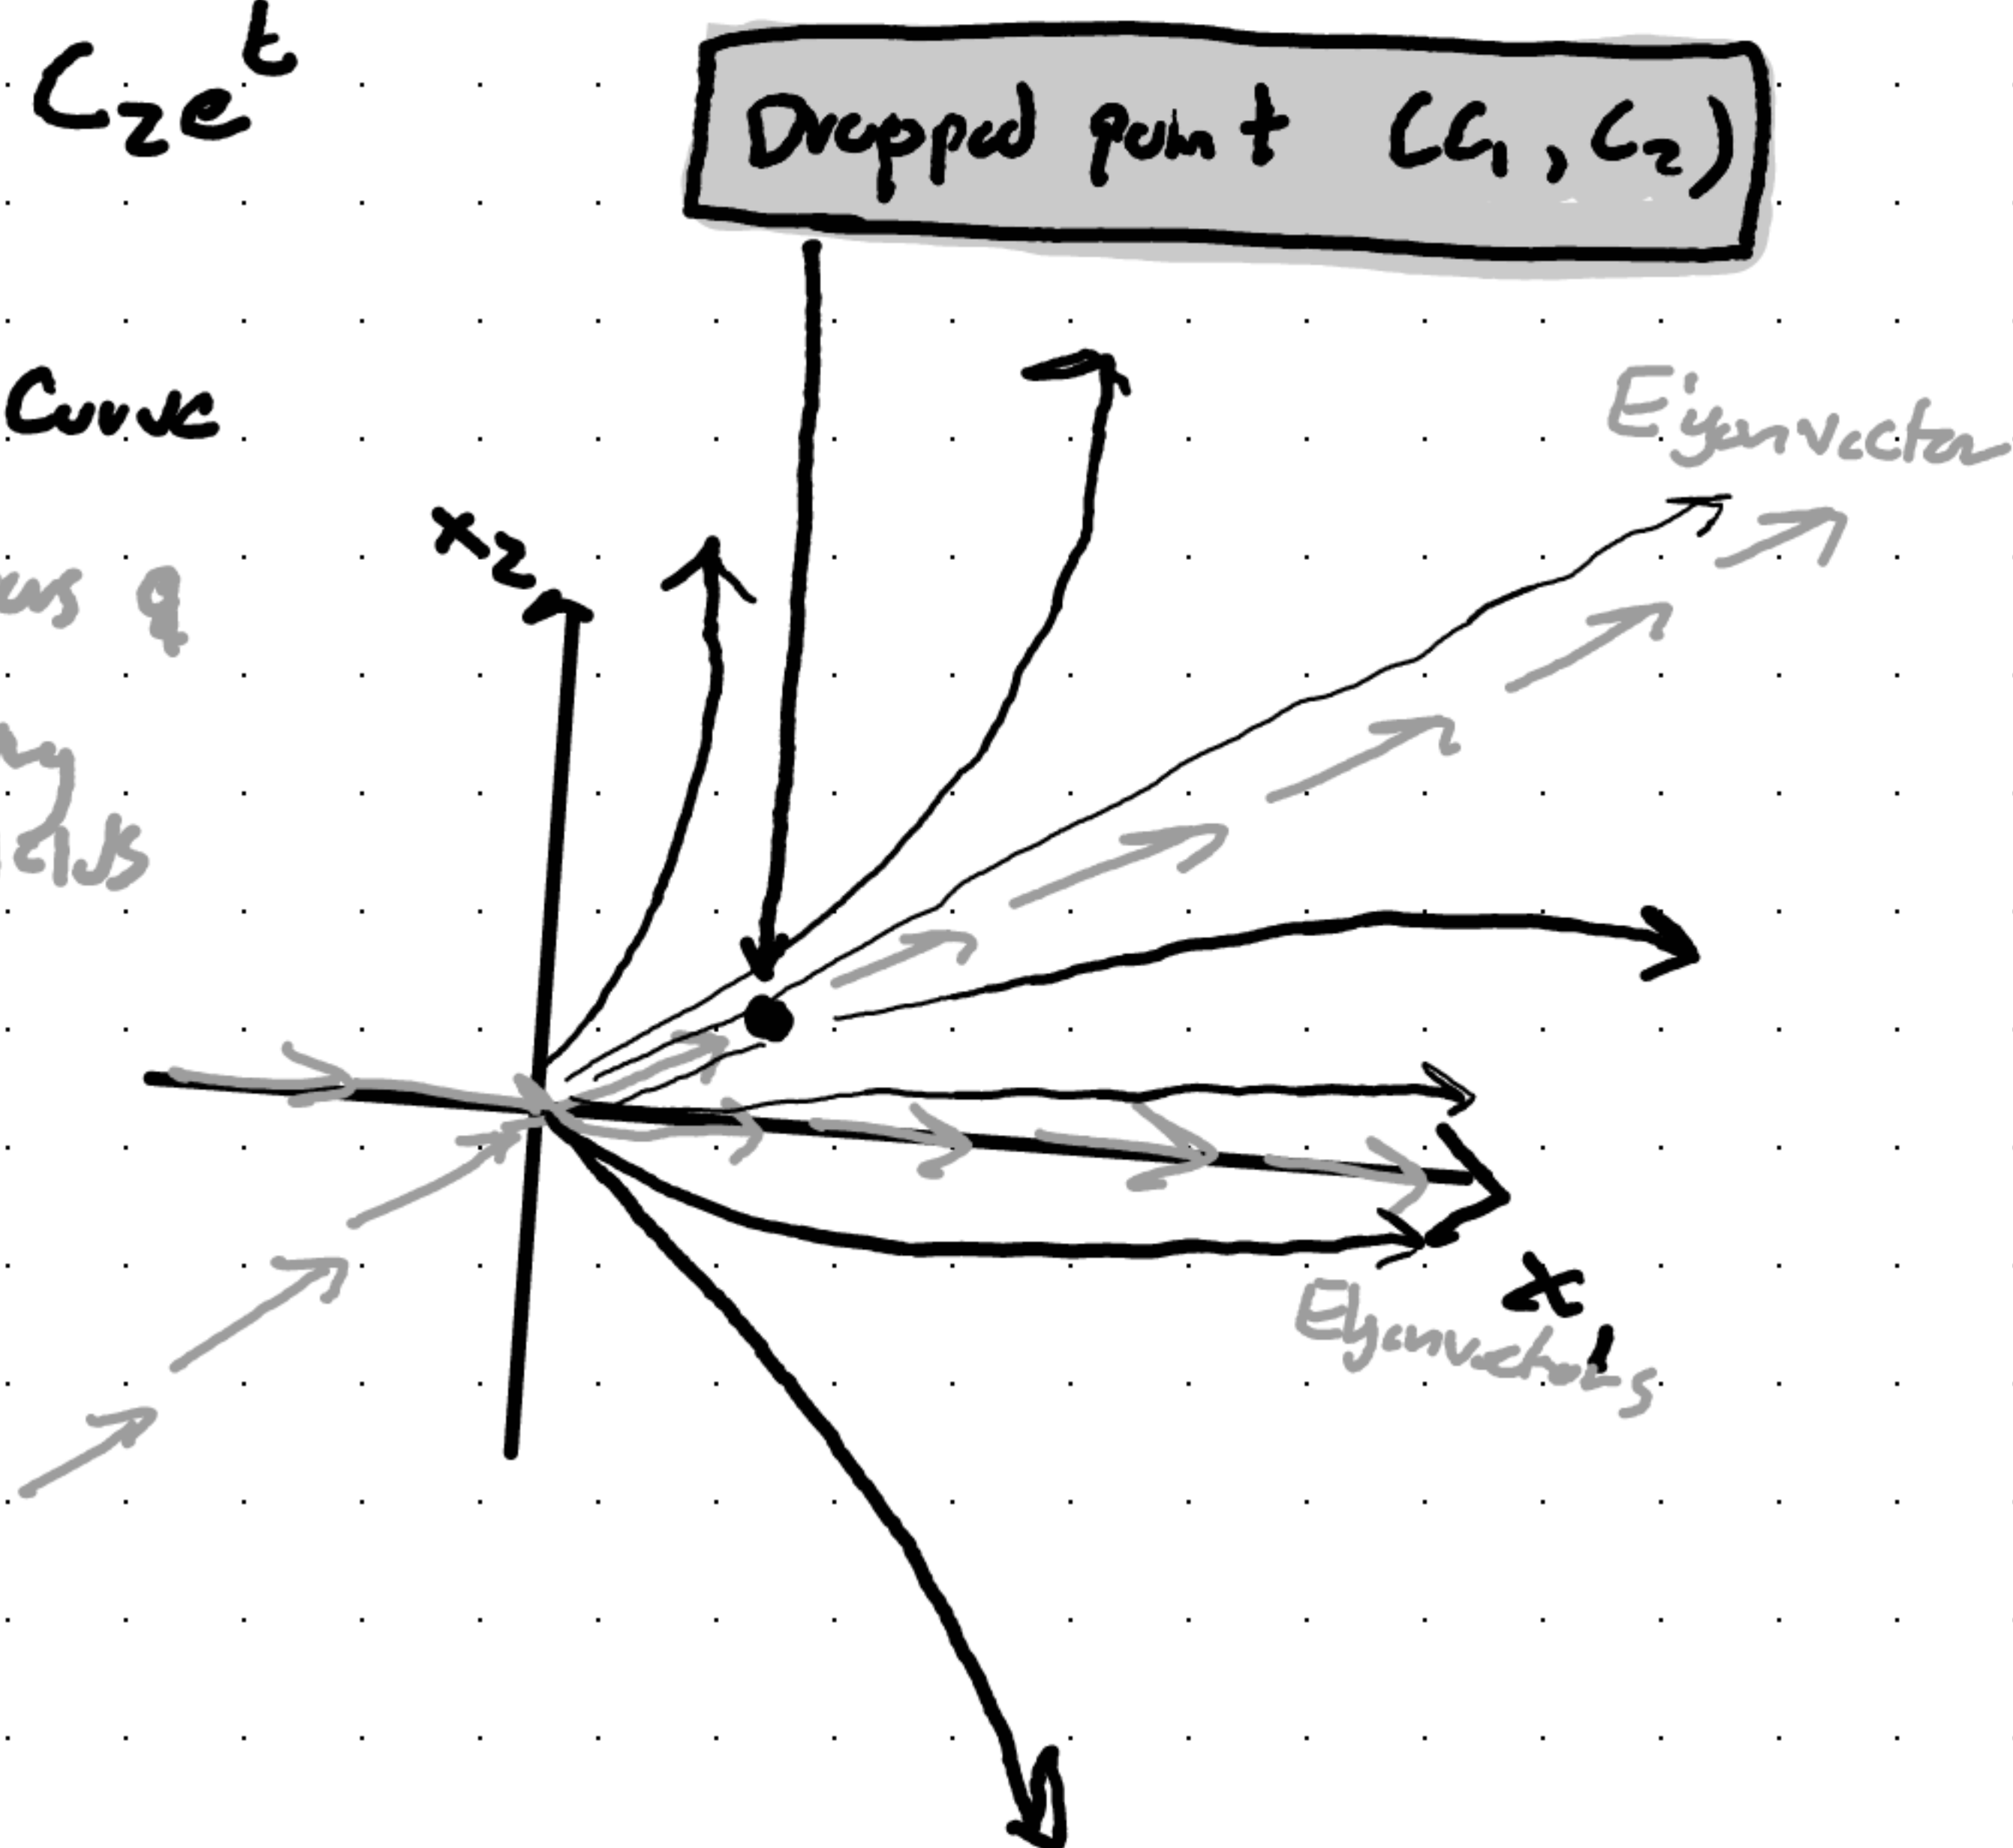 C₂eᵗ
Dropped point (C₁, C₂)
Curve
Eigenvector
x₂
Eigenvectors
x₁